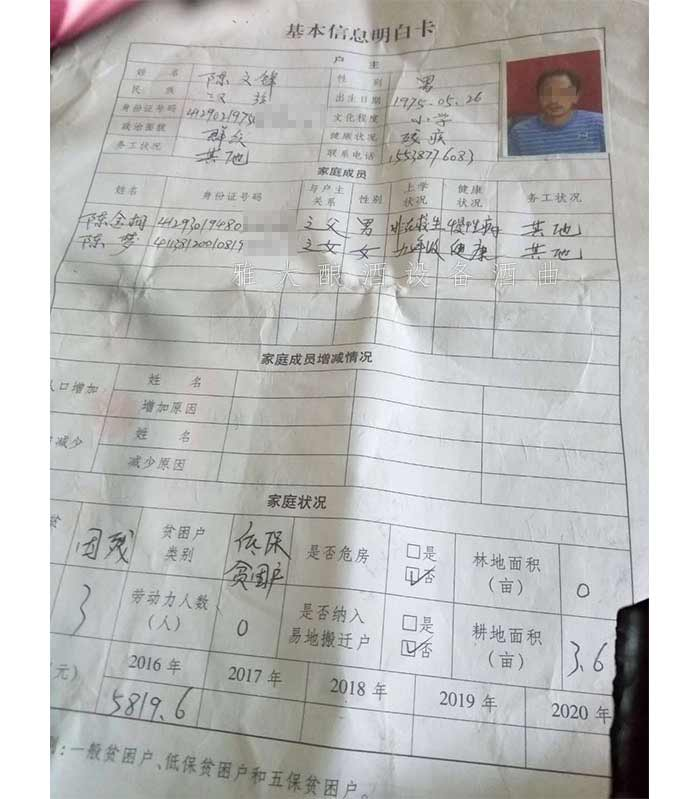 基本信息明白卡
户 主
姓 名 陈文锋 性 别 男
民 族 汉族 出生日期 1975.05.26
身份证号码 4129021975 文化程度 小学
政治面貌 群众 健康状况 残疾
务工状况 其他 联系电话 15538776083
家庭成员
姓名 身份证号码 与户主关系 性别 上学状况 健康状况 务工状况
41293019480 之父 男 非在校生 慢性病 其他
陈梦 41138120010819 之女 女 九年级 健康 其他
雅大酿酒设备酒曲
家庭成员增减情况
人口增加 姓 名
增加原因
减少 姓 名
减少原因
家庭状况
因残 贫困户类别 低保贫困户 是否危房 □是 ☑否 林地面积（亩） 0
3 劳动力人数（人） 0 是否纳入易地搬迁户 □是 ☑否 耕地面积（亩） 3.6
元） 2016年 2017年 2018年 2019年 2020年
5819.6
别：一般贫困户、低保贫困户和五保贫困户。